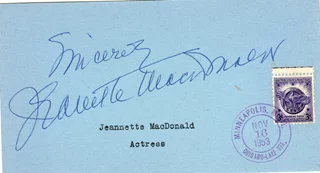 Sincerely
Jeannette MacDonald
Jeannette MacDonald
Actress
MINNEAPOLIS,
NOV
16
1953